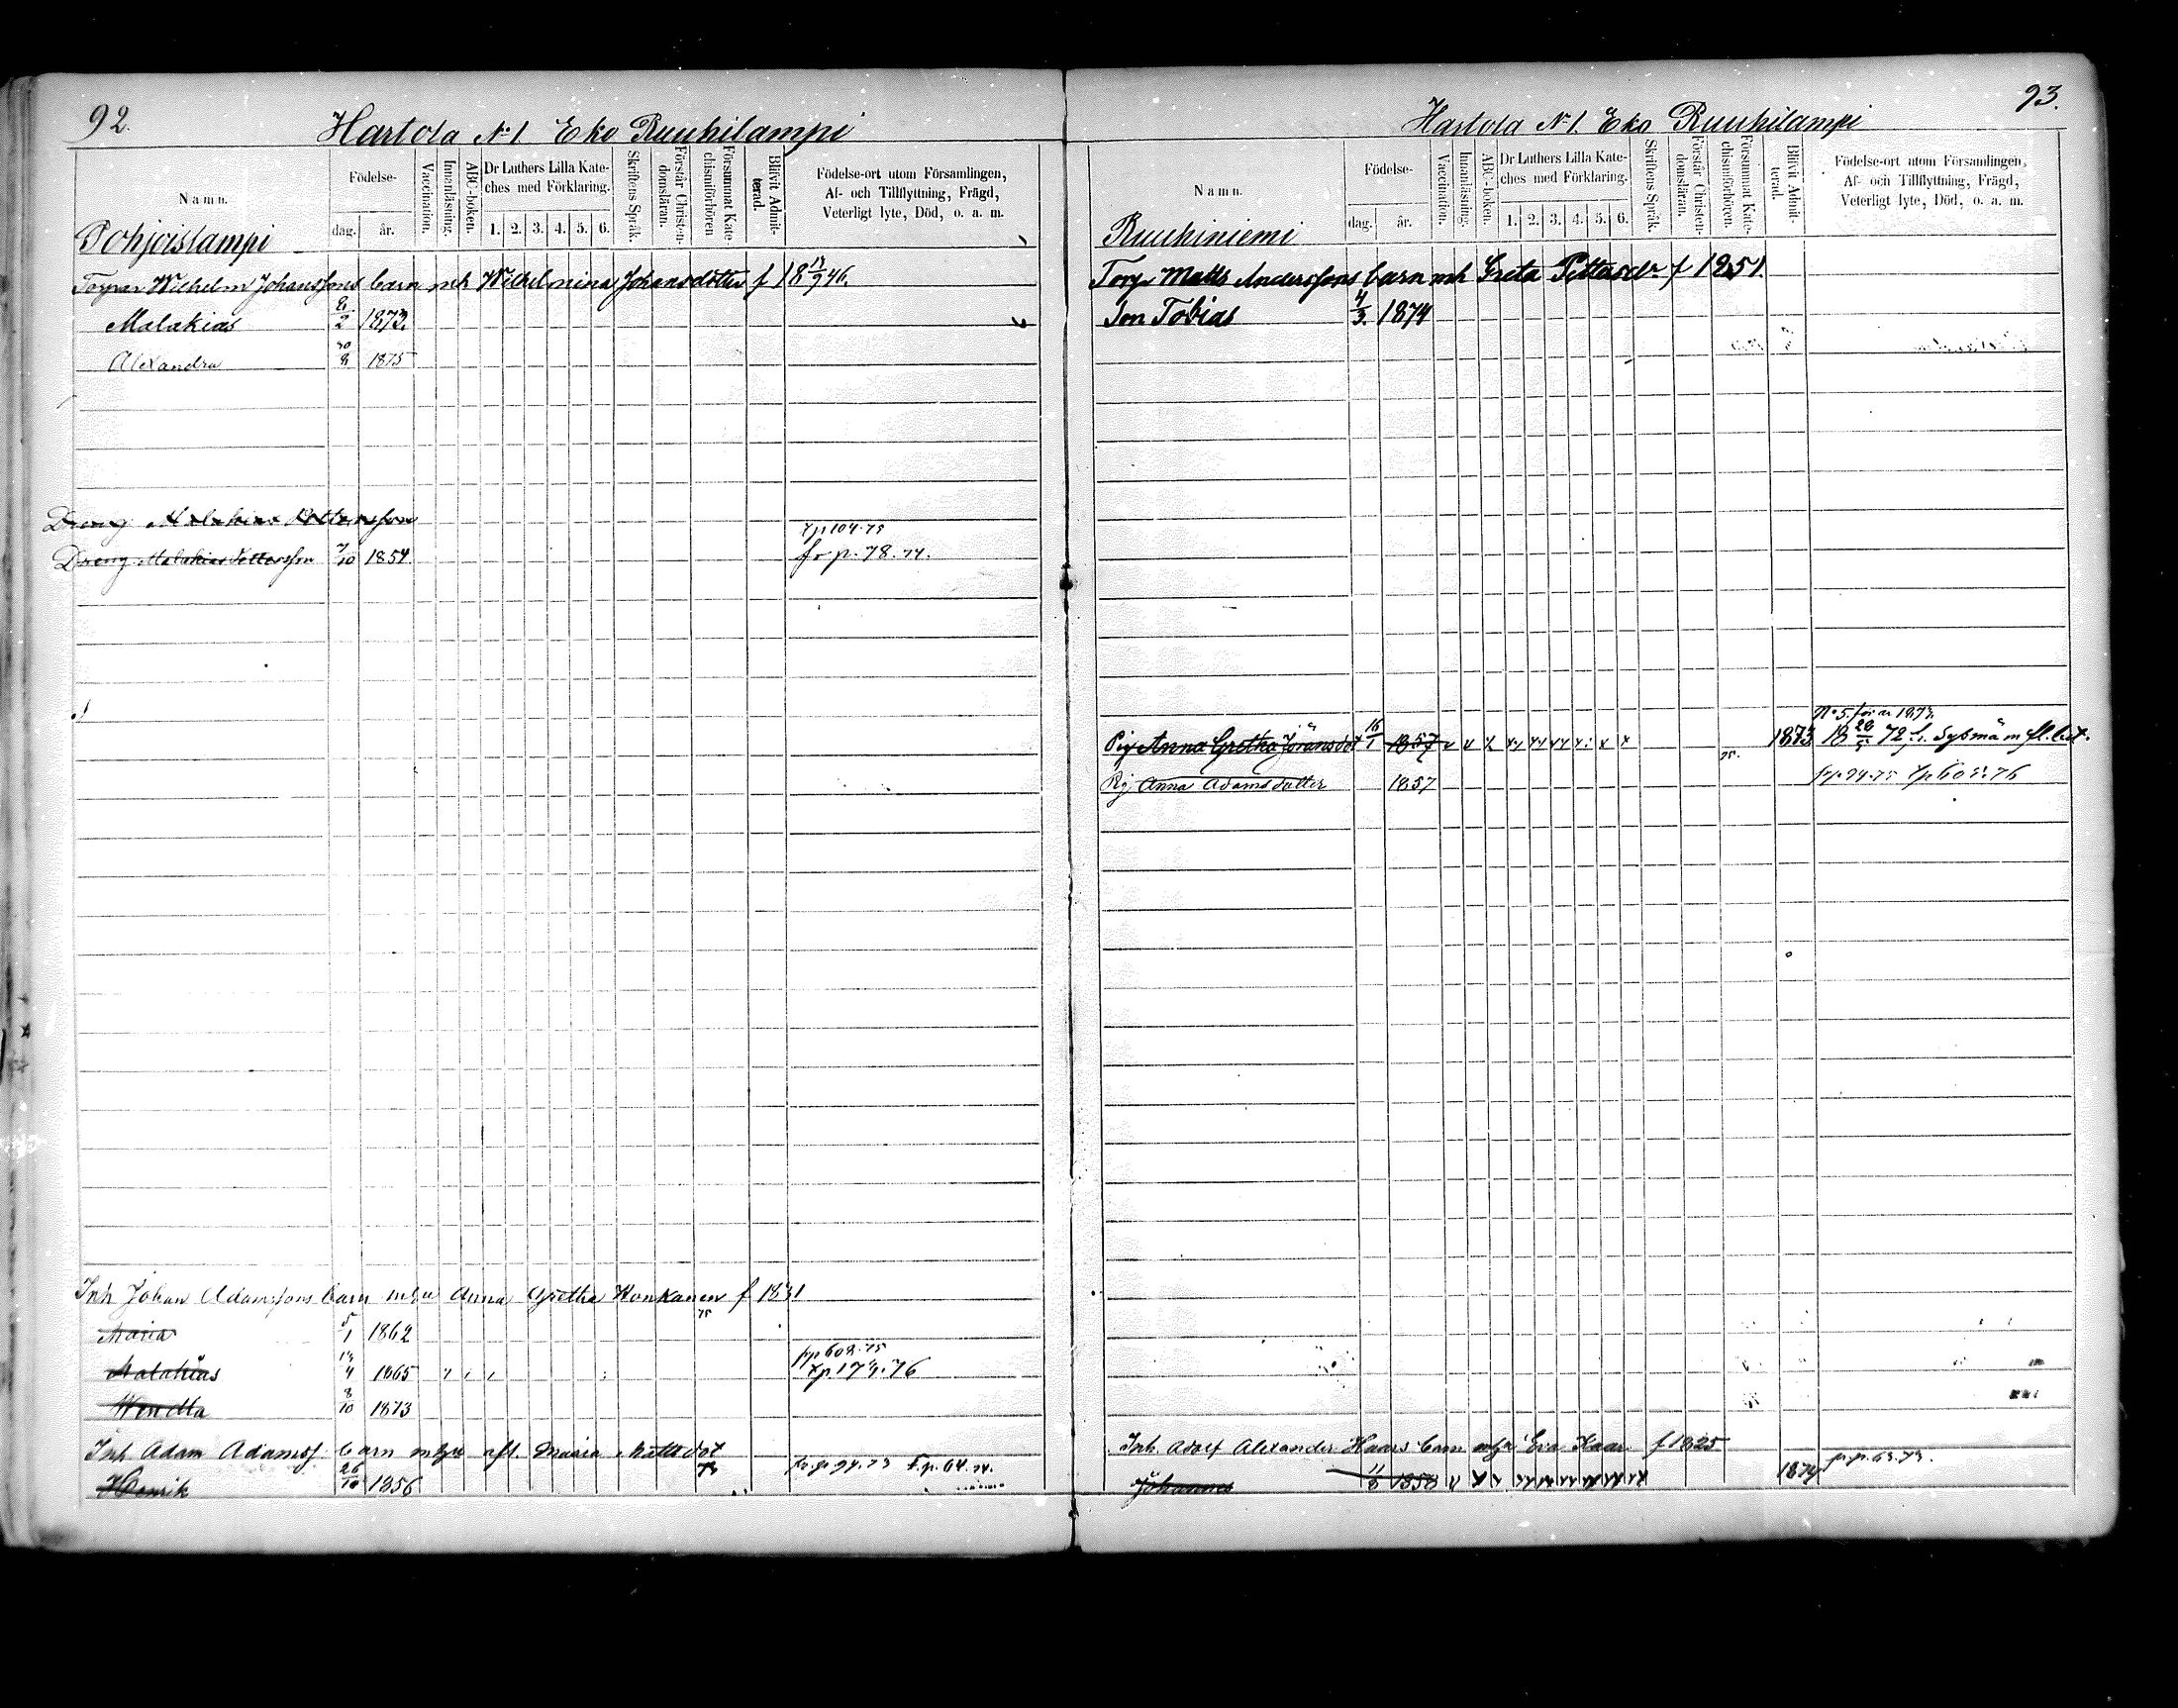 92.
Hartola No 1. Eko Ruuhilampi
Namn.
Födelse-
dag.
år.
Vaccination.
Innanläsning.
ABC-boken.
Dr Luthers Lilla Kate-
ches med Förklaring.
1. 2. 3. 4. 5. 6.
Skriftens Språk.
Förstår Christen-
domsläran.
Försummat Kate-
chismiförhören
Blifvit Admit-
terad.
Födelse-ort utom Församlingen,
Af- och Tillflyttning, Frägd,
Veterligt lyte, Död, o. a. m.
Pohjoislampi
Torpar Wilhelm Johanssons barn mh Wilhelmina Johansdotter f 18 13/9 46.
Malakias 2/2 1873.
Alexandra 30/8 1875
Dreng Malakias Pettersson
tp 104.75
Dreng Malakias Pettersson 7/10 1854. fr p. 78. 74.
Inh Johan Adamssons barn mhu Anna Gretha Konkanen f 1831
75
Maria 5/1 1862
frp 602.75
Malakias 13/4 1865 tp 173.76
Wendla 8/10 1873
Inh Adam Adamss. barn mhu afl. Maria Mattsdot
Henrik 26/10 1856 fr. p. 94.73 t. p. 64. 74.
93.
Hartola No 1. Eko Ruuhilampi
Namn.
Födelse-
dag.
år.
Vaccination.
Innanläsning.
ABC-boken.
Dr Luthers Lilla Kate-
ches med Förklaring.
1. 2. 3. 4. 5. 6.
Skriftens Språk.
Förstår Christen-
domsläran.
Försummat Kate-
chismiförhören.
Blifvit Admit-
terad.
Födelse-ort utom Församlingen,
Af- och Tillflyttning, Frägd,
Veterligt lyte, Död, o. a. m.
Ruuhiniemi
Torp Matts Anderssons barn mh Greta Pettersdr f 1851.
Son Tobias 4/3. 1874
No 5. för år 1873.
Pig Anna Gretha Jöransdot 16/1 1857 1873 18 28/5 72 fr. Sysmä m fl. bet.
75.
Pig Anna Adamsdotter 1857 frp. 94.75 tp 602.76
Inh. Adolf Alexander Haars barn mha Eva Kaar f 1825
Johannes 11/8 1858 1874 fr. p. 63.73.